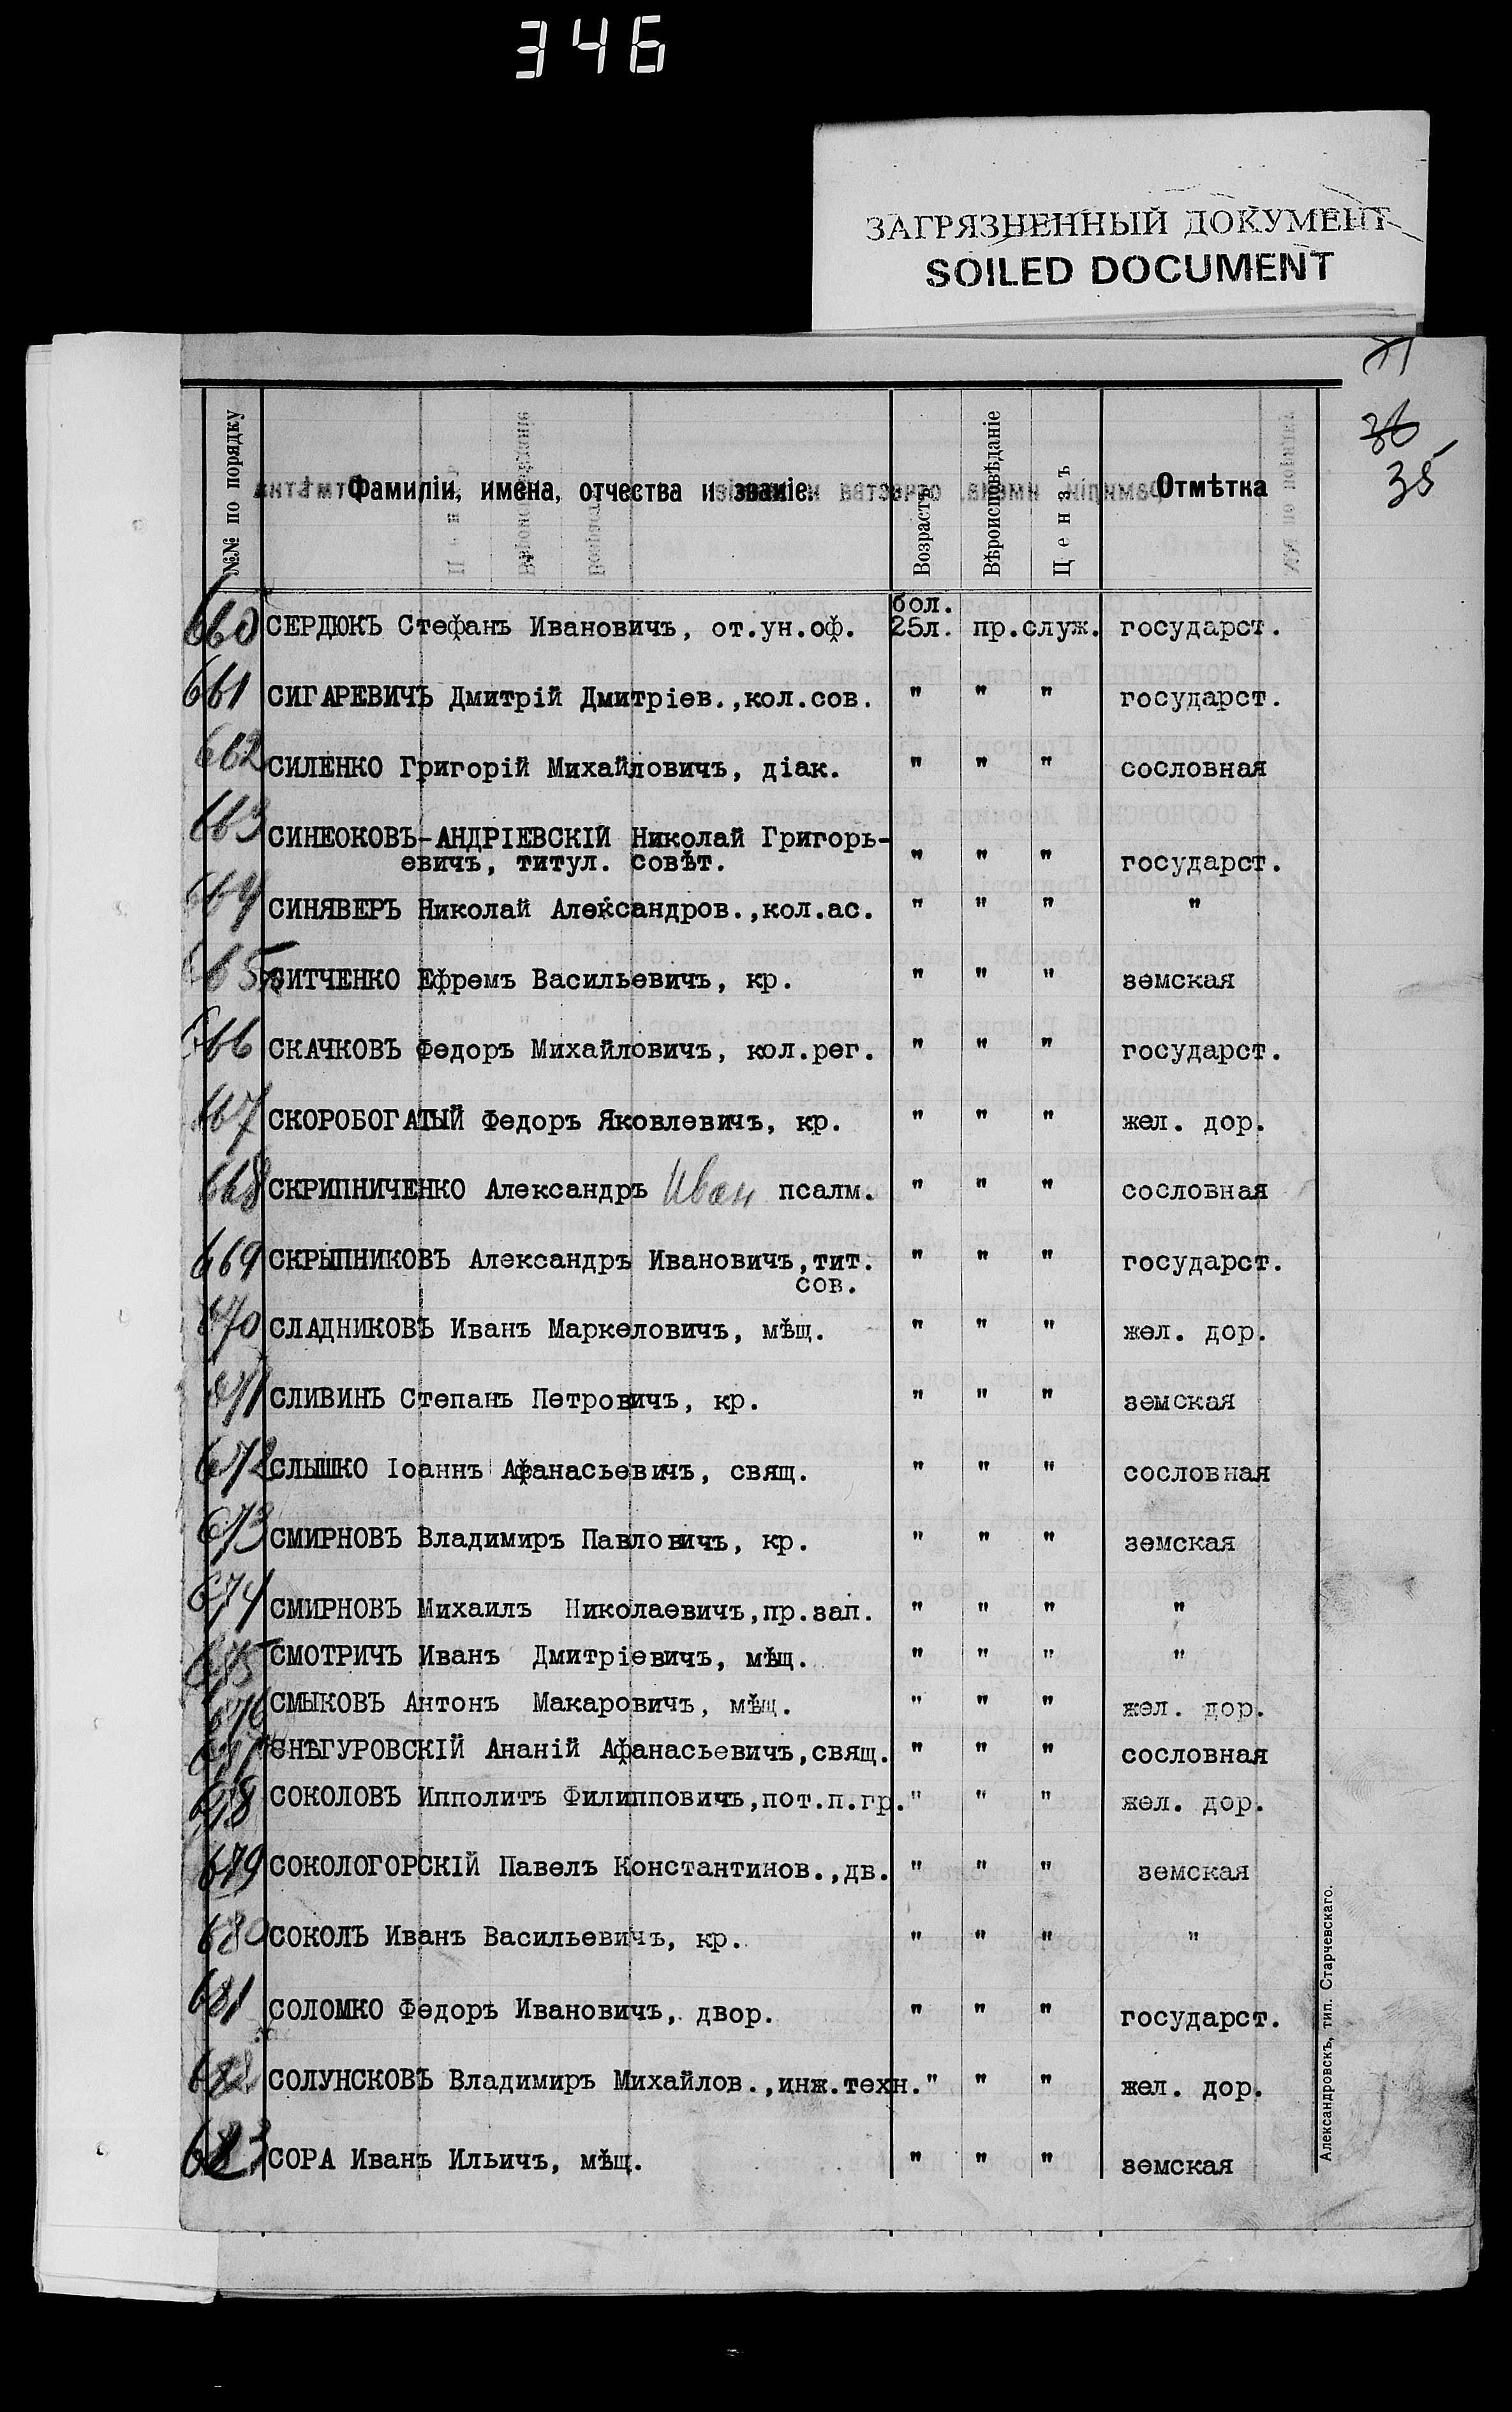 346
ЗАГРЯЗНЕННЫЙ ДОКУМЕНТ
SOILED DOCUMENT
71
36
35
№№ по порядку Фамиліи, имена, отчества и званіе. Возрастъ Вѣроисповѣданіе Цензъ Отмѣтка
бол.
660 СЕРДЮКЪ Стефанъ Ивановичъ, от.ун.оф. 25л. пр.служ. государст.
661 СИГАРЕВИЧЪ Дмитрій Дмитріев.,кол.сов. " " " государст.
662 СИЛЕНКО Григорій Михайловичъ, діак. " " " сословная
663 СИНЕОКОВЪ-АНДРІЕВСКІЙ Николай Григорь-
евичъ, титул. совѣт. " " " государст.
664 СИНЯВЕРЪ Николай Александров.,кол.ас. " " " "
665 СИТЧЕНКО Ефремъ Васильевичъ, кр. " " " земская
666 СКАЧКОВЪ Федоръ Михайловичъ, кол.рег. " " " государст.
667 СКОРОБОГАТЫЙ Федоръ Яковлевичъ, кр. " " " жел. дор.
668 СКРИПНИЧЕНКО Александръ Иван псалм. " " " сословная
669 СКРЫПНИКОВЪ Александръ Ивановичъ,тит. " " " государст.
сов.
670 СЛАДНИКОВЪ Иванъ Маркеловичъ, мѣщ. " " " жел. дор.
671 СЛИВИНЪ Степанъ Петровичъ, кр. " " " земская
672 СЛЫШКО Іоаннъ Афанасьевичъ, свящ. " " " сословная
673 СМИРНОВЪ Владимиръ Павловичъ, кр. " " " земская
674 СМИРНОВЪ Михаилъ Николаевичъ,пр.зап. " " " "
675 СМОТРИЧЪ Иванъ Дмитріевичъ, мѣщ. " " " "
676 СМЫКОВЪ Антонъ Макаровичъ, мѣщ. " " " жел. дор.
677 СНѢГУРОВСКІЙ Ананій Афанасьевичъ,свящ. " " " сословная
678 СОКОЛОВЪ Ипполитъ Филипповичъ,пот.п.гр. " " " жел. дор.
679 СОКОЛОГОРСКІЙ Павелъ Константинов.,дв. " " " земская
680 СОКОЛЪ Иванъ Васильевичъ, кр. " " " "
681 СОЛОМКО Федоръ Ивановичъ, двор. " " " государст.
682 СОЛУНСКОВЪ Владимиръ Михайлов.,инж.техн. " " " жел. дор.
683 СОРА Иванъ Ильичъ, мѣщ. " " " земская
Александровскъ, тип. Старчевскаго.